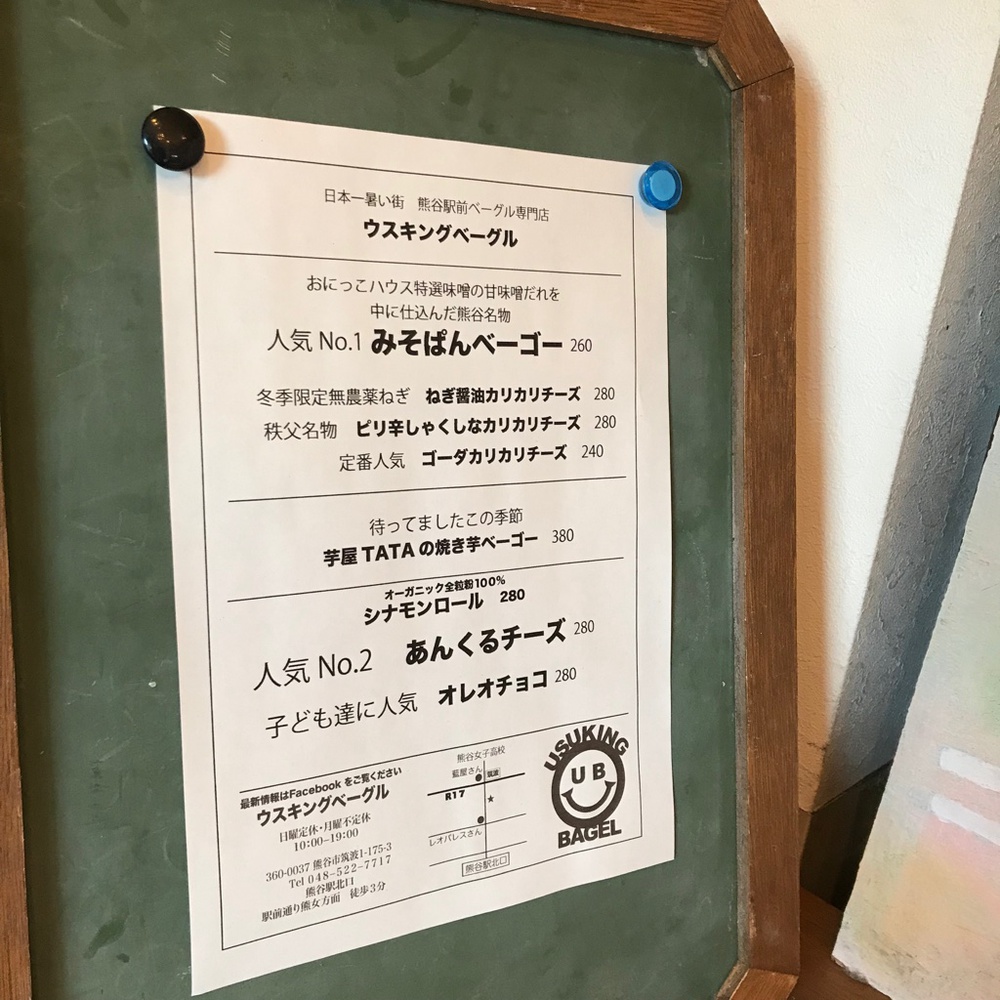 日本一暑い街 熊谷駅前ベーグル専門店
ウスキングベーグル
おにっこハウス特選味噌の甘味噌だれを
中に仕込んだ熊谷名物
人気 No.1 みそぱんベーゴー 260
冬季限定無農薬ねぎ ねぎ醤油カリカリチーズ 280
秩父名物 ピリ辛しゃくしなカリカリチーズ 280
定番人気 ゴーダカリカリチーズ 240
待ってましたこの季節
芋屋TATAの焼き芋ベーゴー 380
オーガニック全粒粉100%
シナモンロール 280
人気 No.2 あんくるチーズ 280
子ども達に人気 オレオチョコ 280
最新情報はFacebookをご覧ください
ウスキングベーグル
日曜定休・月曜不定休
10:00−19:00
360-0037 熊谷市筑波1-175-3
Tel 048-522-7717
熊谷駅北口
駅前通り熊女方面 徒歩3分
熊谷女子高校
藍屋さん
筑波
R17
レオパレスさん
熊谷駅北口
USUKING
UB
BAGEL